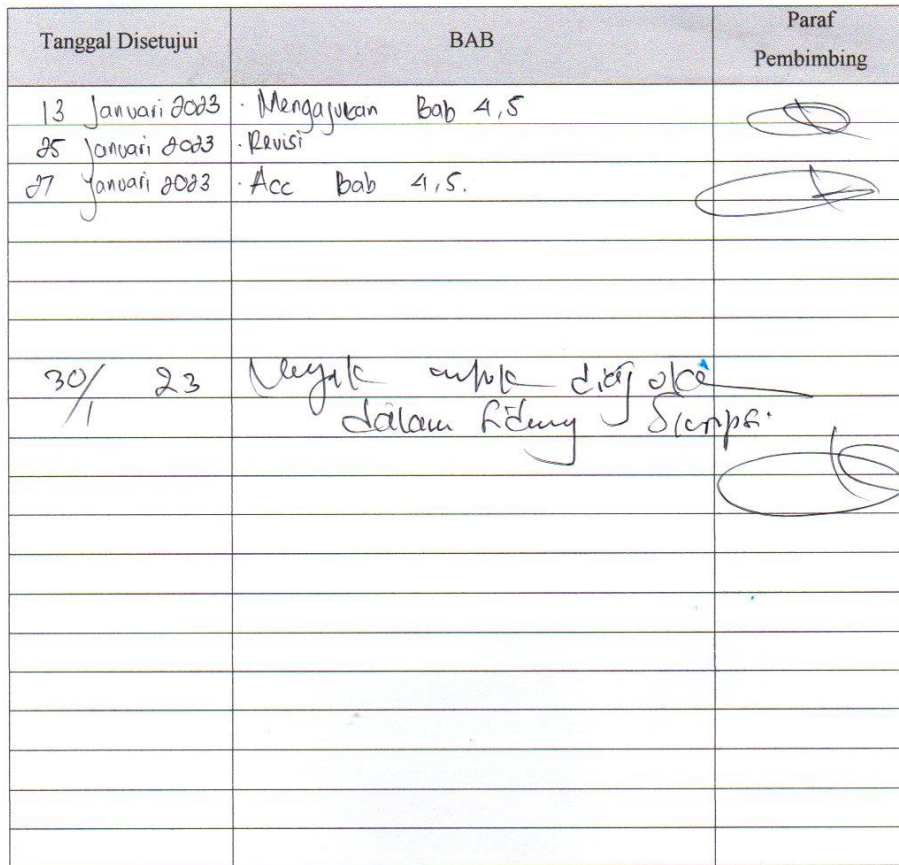 Tanggal Disetujui BAB Paraf Pembimbing
13 Januari 2023 · Mengajukan Bab 4,5
25 Januari 2023 · Revisi
27 Januari 2023 · Acc Bab 4,5.
30/1 23 untuk
dalam Sidang Skripsi.